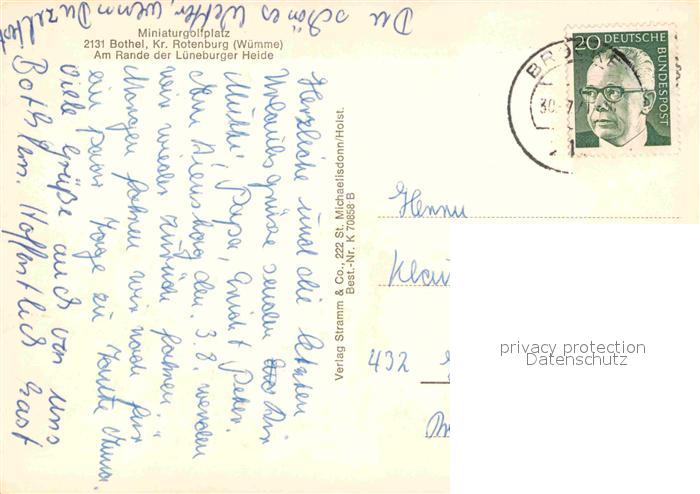 Miniaturgolfplatz
2131 Bothel, Kr. Rotenburg (Wümme)
Am Rande der Lüneburger Heide
Herzliche und die letzten
Urlaubsgrüße senden Dir
Mutti, Papa, Peter.
Am Dienstag den 3.8. werden
wir wieder zurück fahren.
Morgen fahren wir noch für
ein paar Tage zu Tante Anna.
Viele Grüße auch von uns
Hoffentlich hast
Du schönes Wetter, wenn Du zeltest
Verlag Stramm & Co., 222 St. Michaelisdonn/Holst.
Best.-Nr. K 70858 B
BRO
30. 7
20 DEUTSCHE
BUNDESPOST
Herrn
Klau
432
privacy protection
Datenschutz